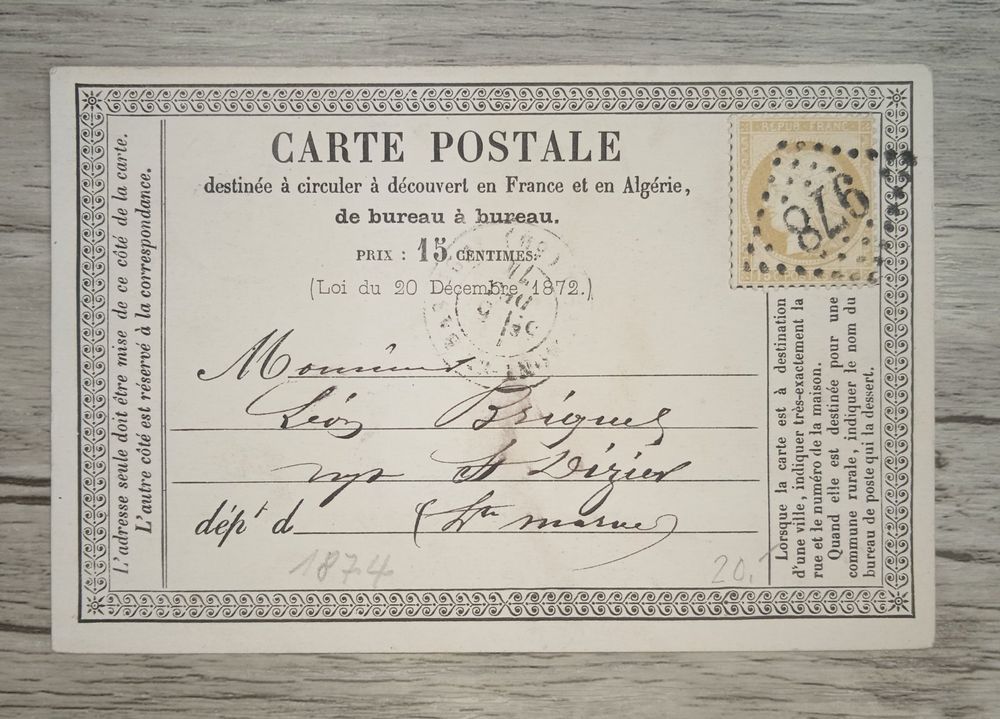 L'adresse seule doit être mise de ce côté de la carte.
L'autre côté est réservé à la correspondance.
CARTE POSTALE
destinée à circuler à découvert en France et en Algérie,
de bureau à bureau.
PRIX : 15 CENTIMES.
(Loi du 20 Décembre 1872.)
REPUB. FRANC.
978
Monsieur
Léon
St Dizier
dépt d (Hte marne)
1874
20.
Lorsque la carte est à destination
d'une ville, indiquer très-exactement la
rue et le numéro de la maison.
Quand elle est destinée pour une
commune rurale, indiquer le nom du
bureau de poste qui la dessert.